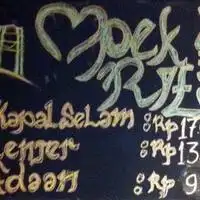 Mpek
Kapal Selam : Rp 17
Lenjer : Rp 13
Adaan : Rp 9